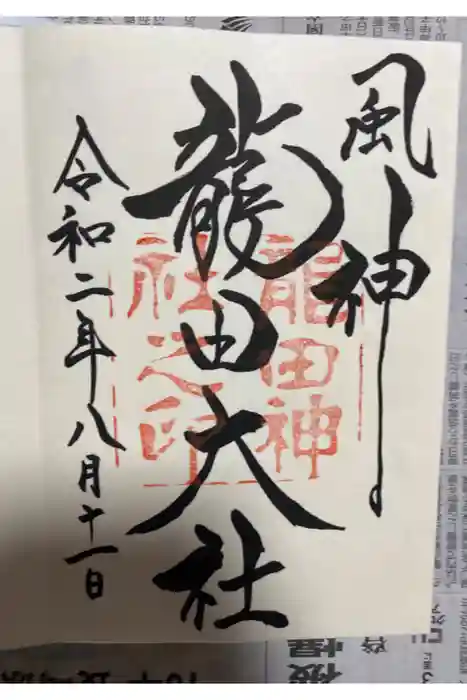 風神
龍田大社
令和二年八月十一日
龍田神
社之印